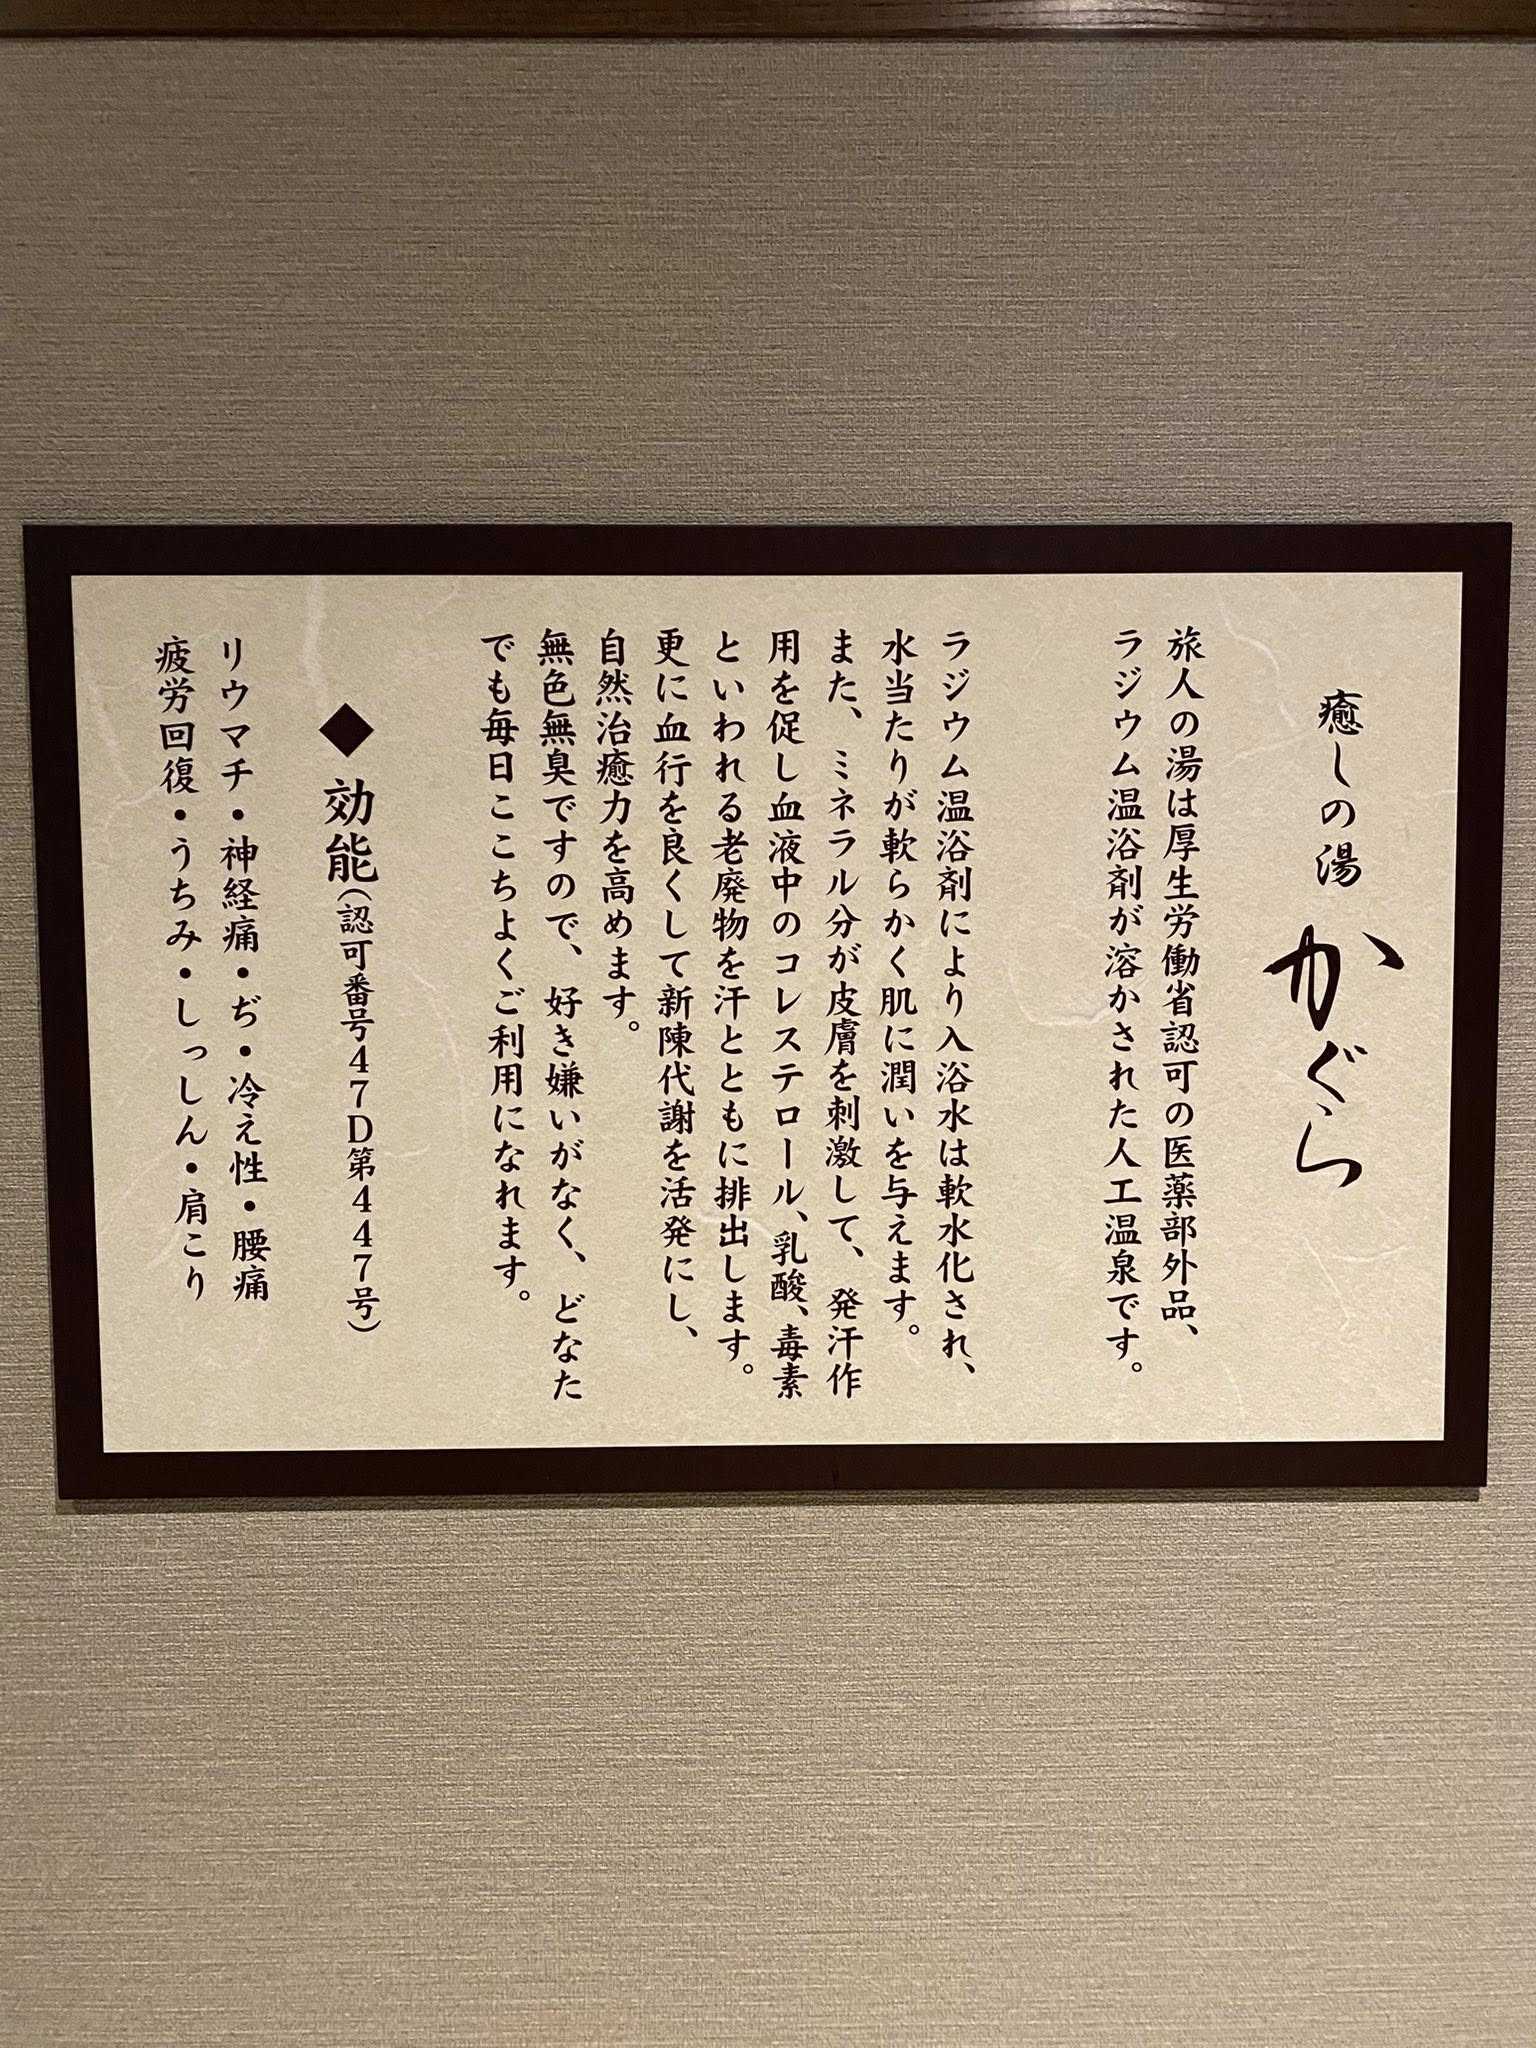 癒しの湯 かぐら
旅人の湯は厚生労働省認可の医薬部外品、
ラジウム温浴剤が溶かされた人工温泉です。
ラジウム温浴剤により入浴水は軟水化され、
水当たりが軟らかく肌に潤いを与えます。
また、ミネラル分が皮膚を刺激して、発汗作
用を促し血液中のコレステロール、乳酸、毒素
といわれる老廃物を汗とともに排出します。
更に血行を良くして新陳代謝を活発にし、
自然治癒力を高めます。
無色無臭ですので、好き嫌いがなく、どなた
でも毎日ここちよくご利用になれます。
◆効能(認可番号47D第447号)
リウマチ・神経痛・ぢ・冷え性・腰痛
疲労回復・うちみ・しっしん・肩こり